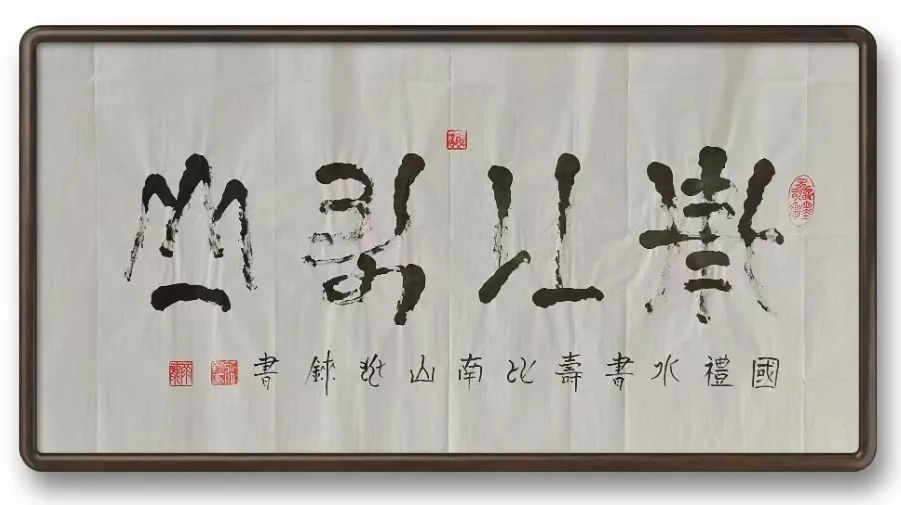 壽比南山
國禮水書壽比南山書